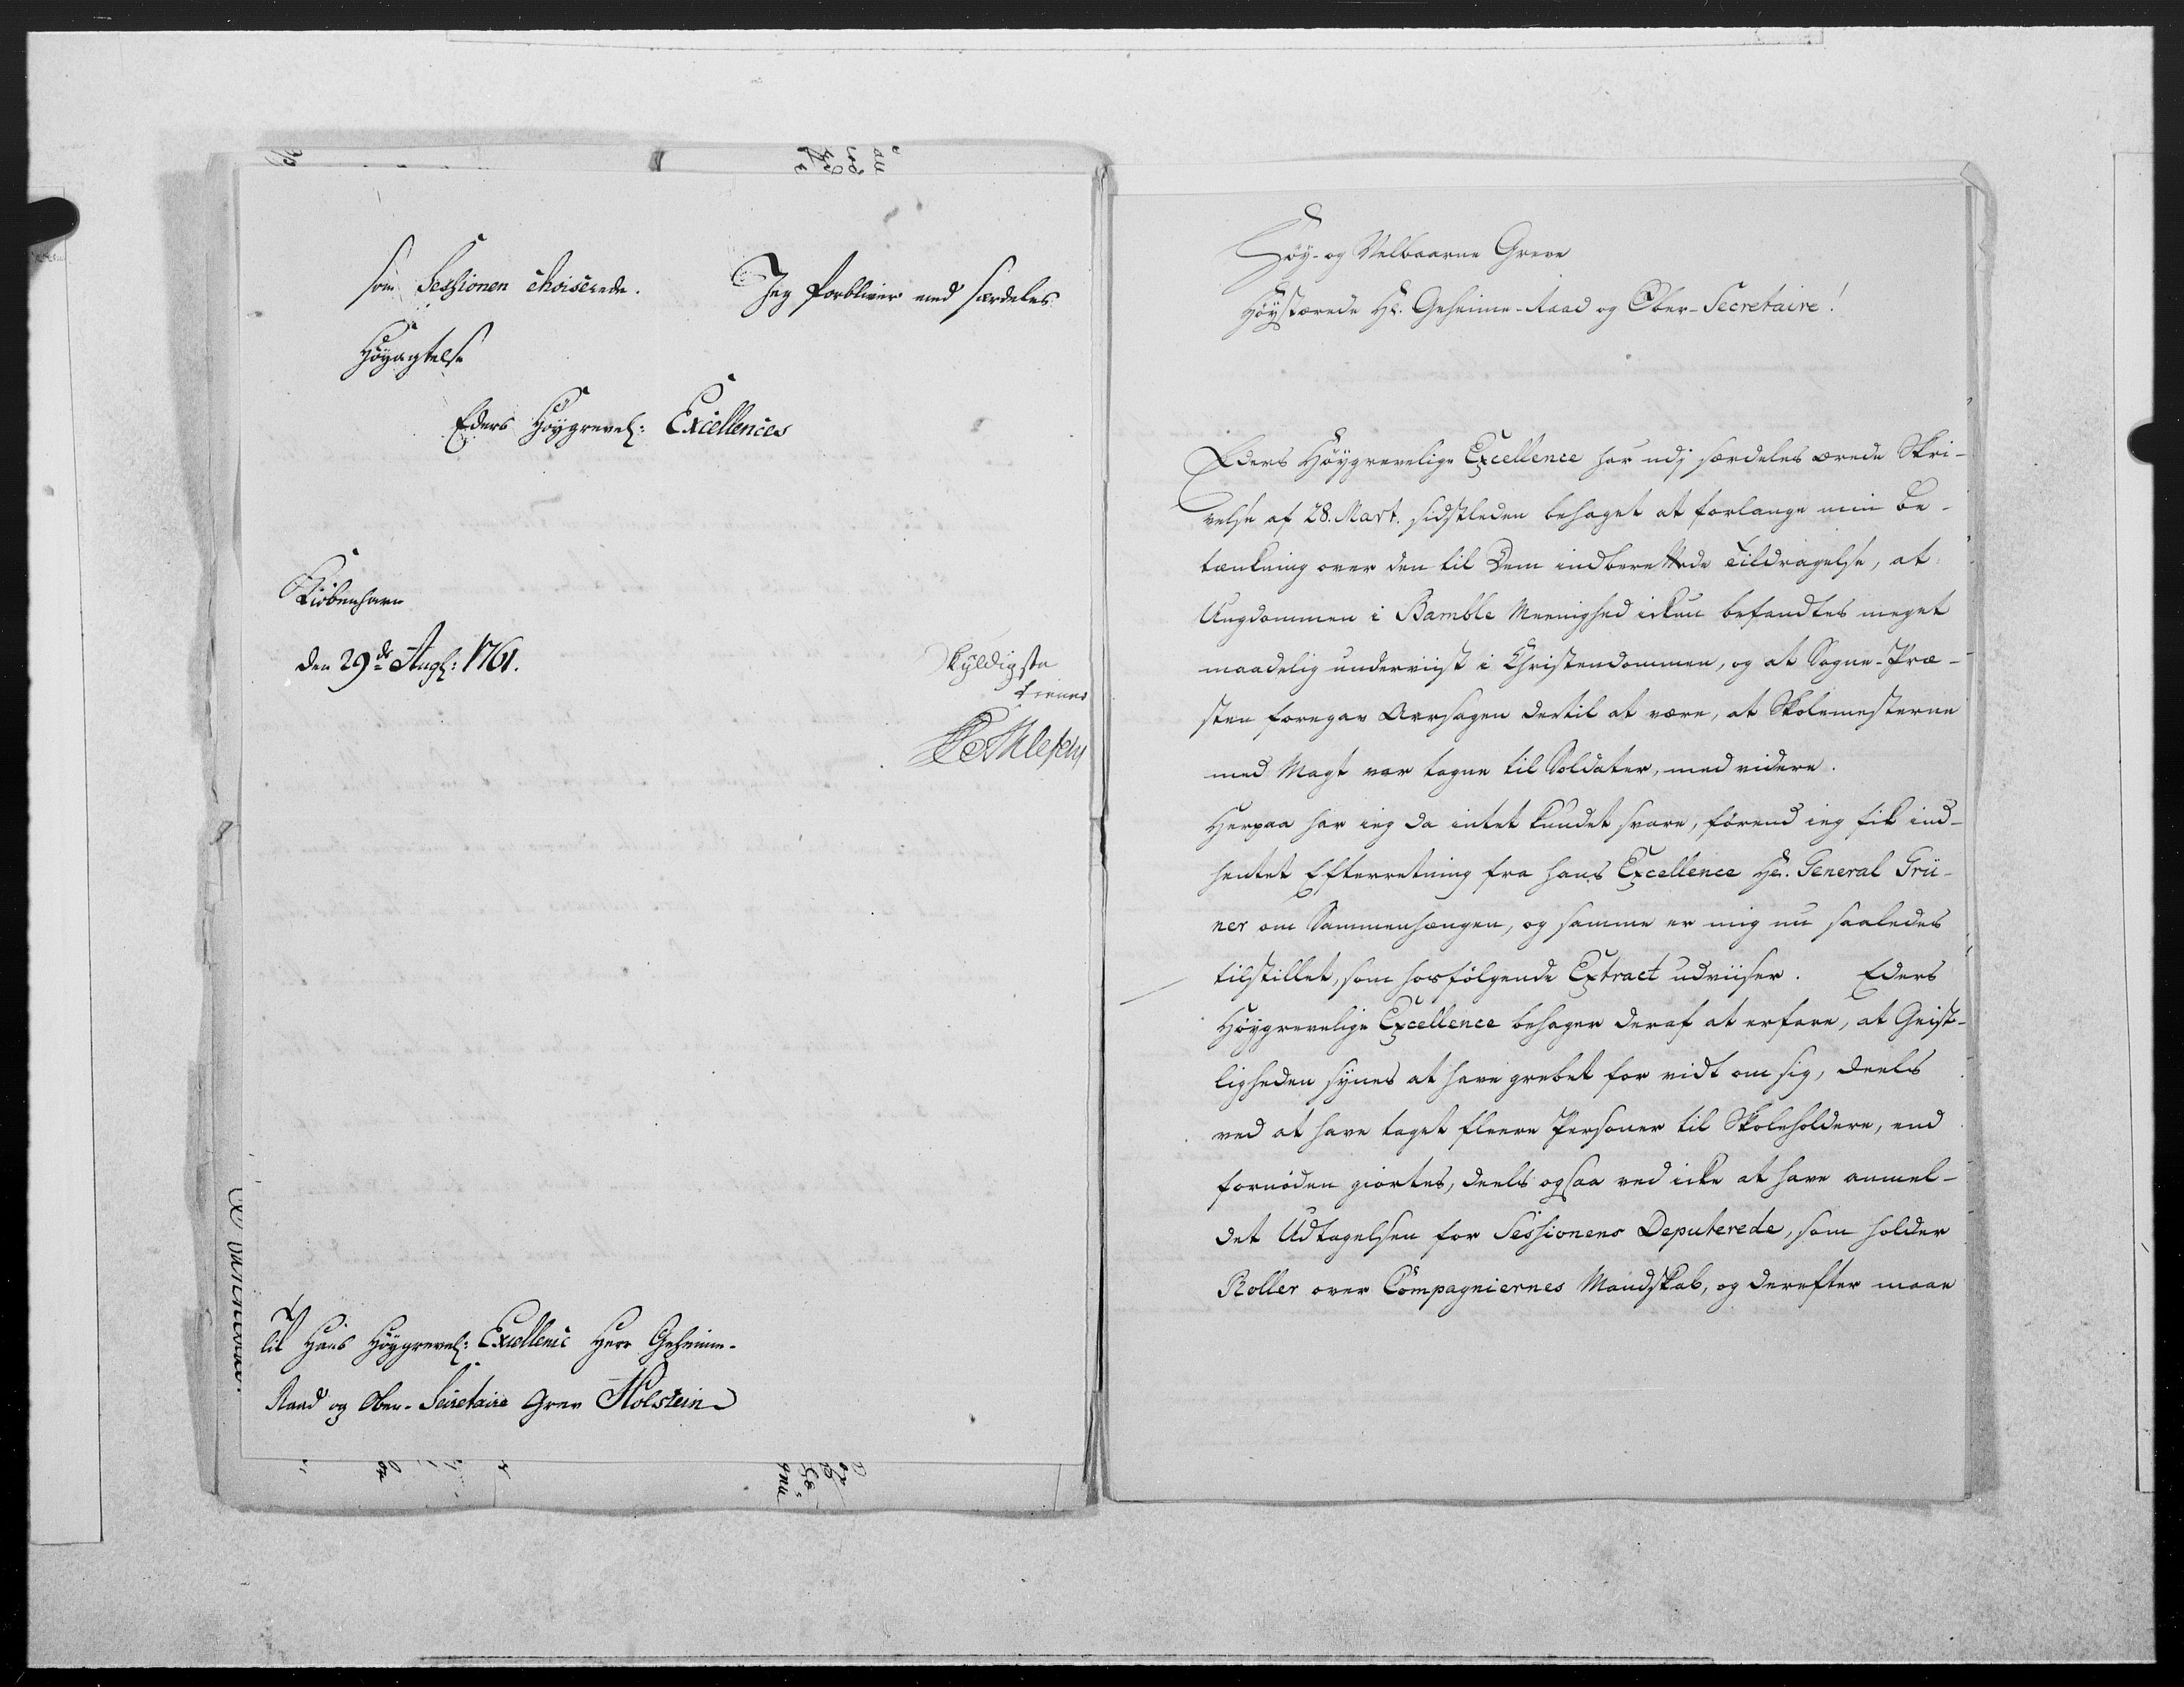 som Sessionen choiserede. Jeg forbliver med særdeles
Høyagtelse
Eders Høygrevel: Excellences
Kiøbenhavn
den 29de Aug: 1761.
skyldigste
tiener
Til Hans Høygrevel: Excellence Herr Geheime-
Raad og Ober-Secretaire Grev Holstein
Høy- og Velbaarne Greve
Høystærede Hr. Geheime-Raad og Ober-Secretaire!
Eders Høygrevelige Excellence har udj særdeles ærede Skri-
velse af 28. Mart. sidstleden behaget at forlange min Be-
tænkning over den til Dem indberettede Tildragelse, at
Ungdommen i Bamble Meenighed ickun befandtes meget
maadelig underviist i Christendommen, og at Sogne-Præ-
sten foregav Aarsagen dertil at være, at Skolemesterne
med Magt var tagne til Soldater, med videre.
Herpaa har ieg da intet kundet svare, førend ieg fik ind-
hentet Efterretning fra hans Excellence Hr. General Grü-
ner om Sammenhængen, og samme er mig nu saaledes
tilstillet, som hosfølgende Extract udviiser. Eders
Høygrevelige Excellence behager deraf at erfare, at Geist-
ligheden synes at have grebet for vidt om sig, deels
ved at have taget fleere Personer til Skoleholdere, end
fornøden giortes, deels ogsaa ved icke at have anmel-
det Udtagelsen for Sessionens Deputerede, som holder
Roller over Compagniernes Mandskab, og derefter maae